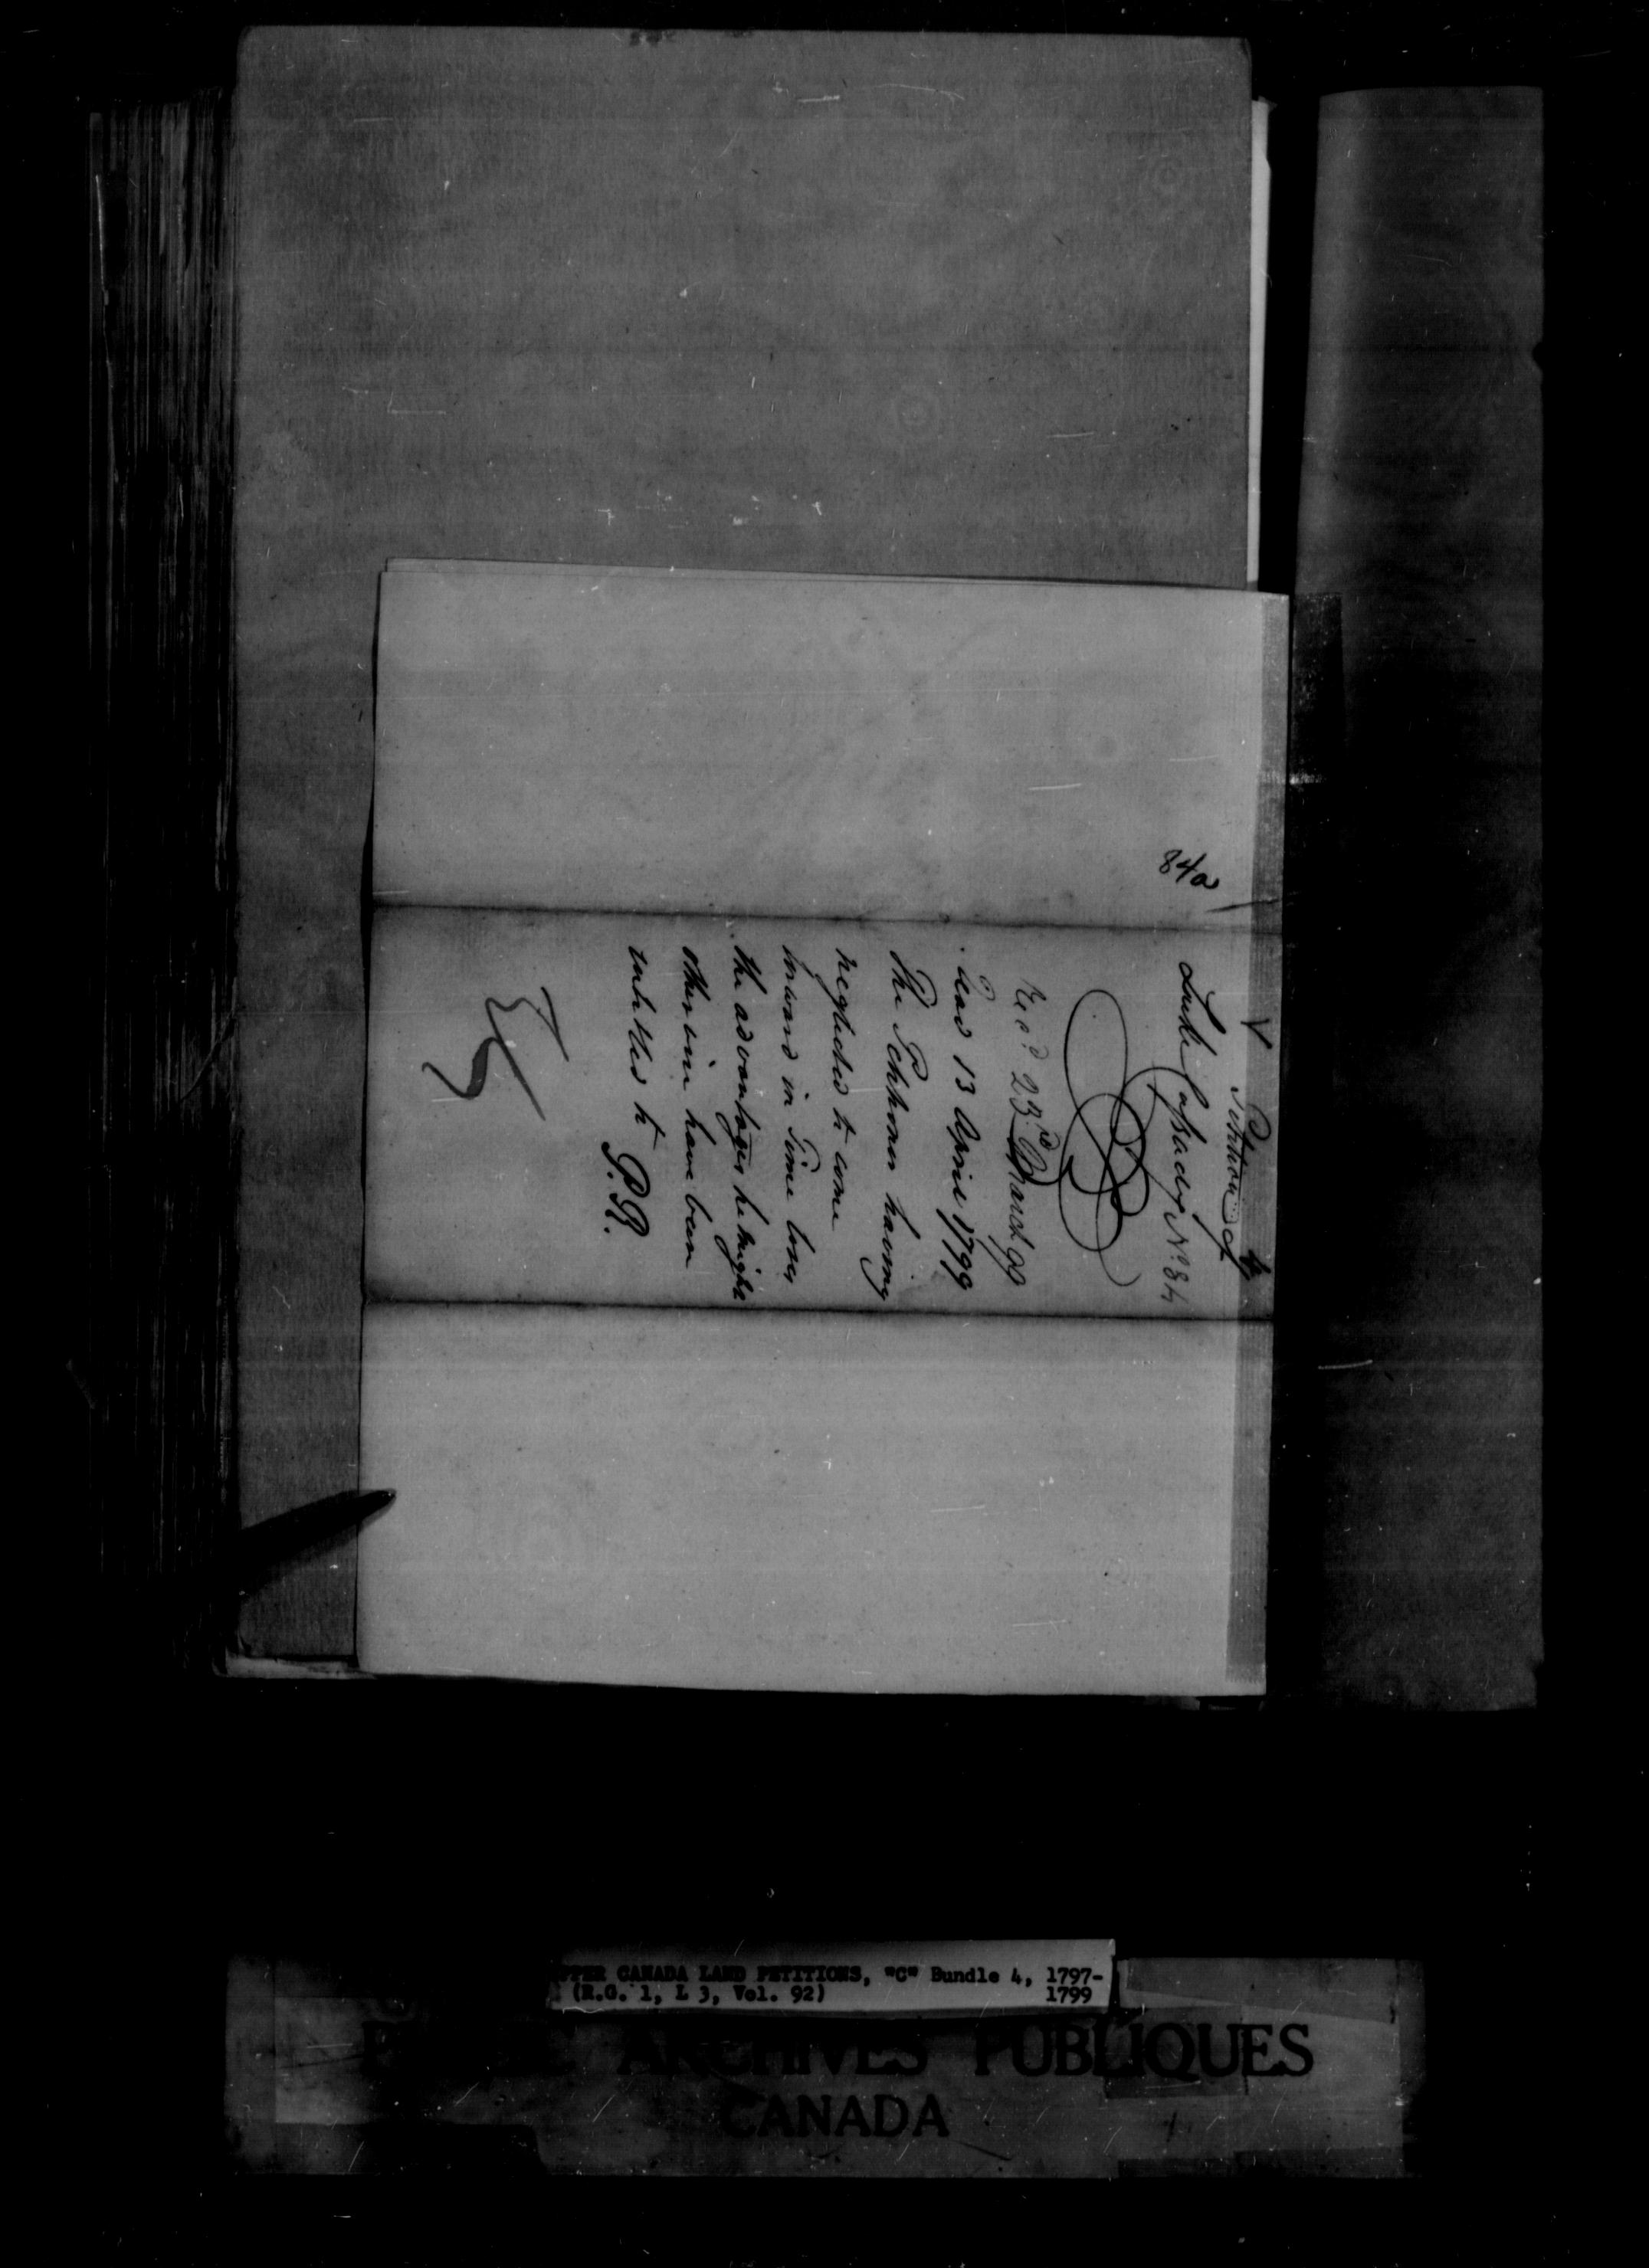 84a
Petition of
Luke Caſsady N.º 84
Rec.d 23.rd March 99
Read 13 April 1799
The Petitioner having
neglected to come
forward in Time loses
the advantages he might
otherwise have been
entitled to
P.R.
UPPER CANADA LAND PETITIONS, "C" Bundle 4, 1797-
(R.G. 1, L 3, Vol. 92) 1799
ARCHIVES PUBLIQUES
CANADA